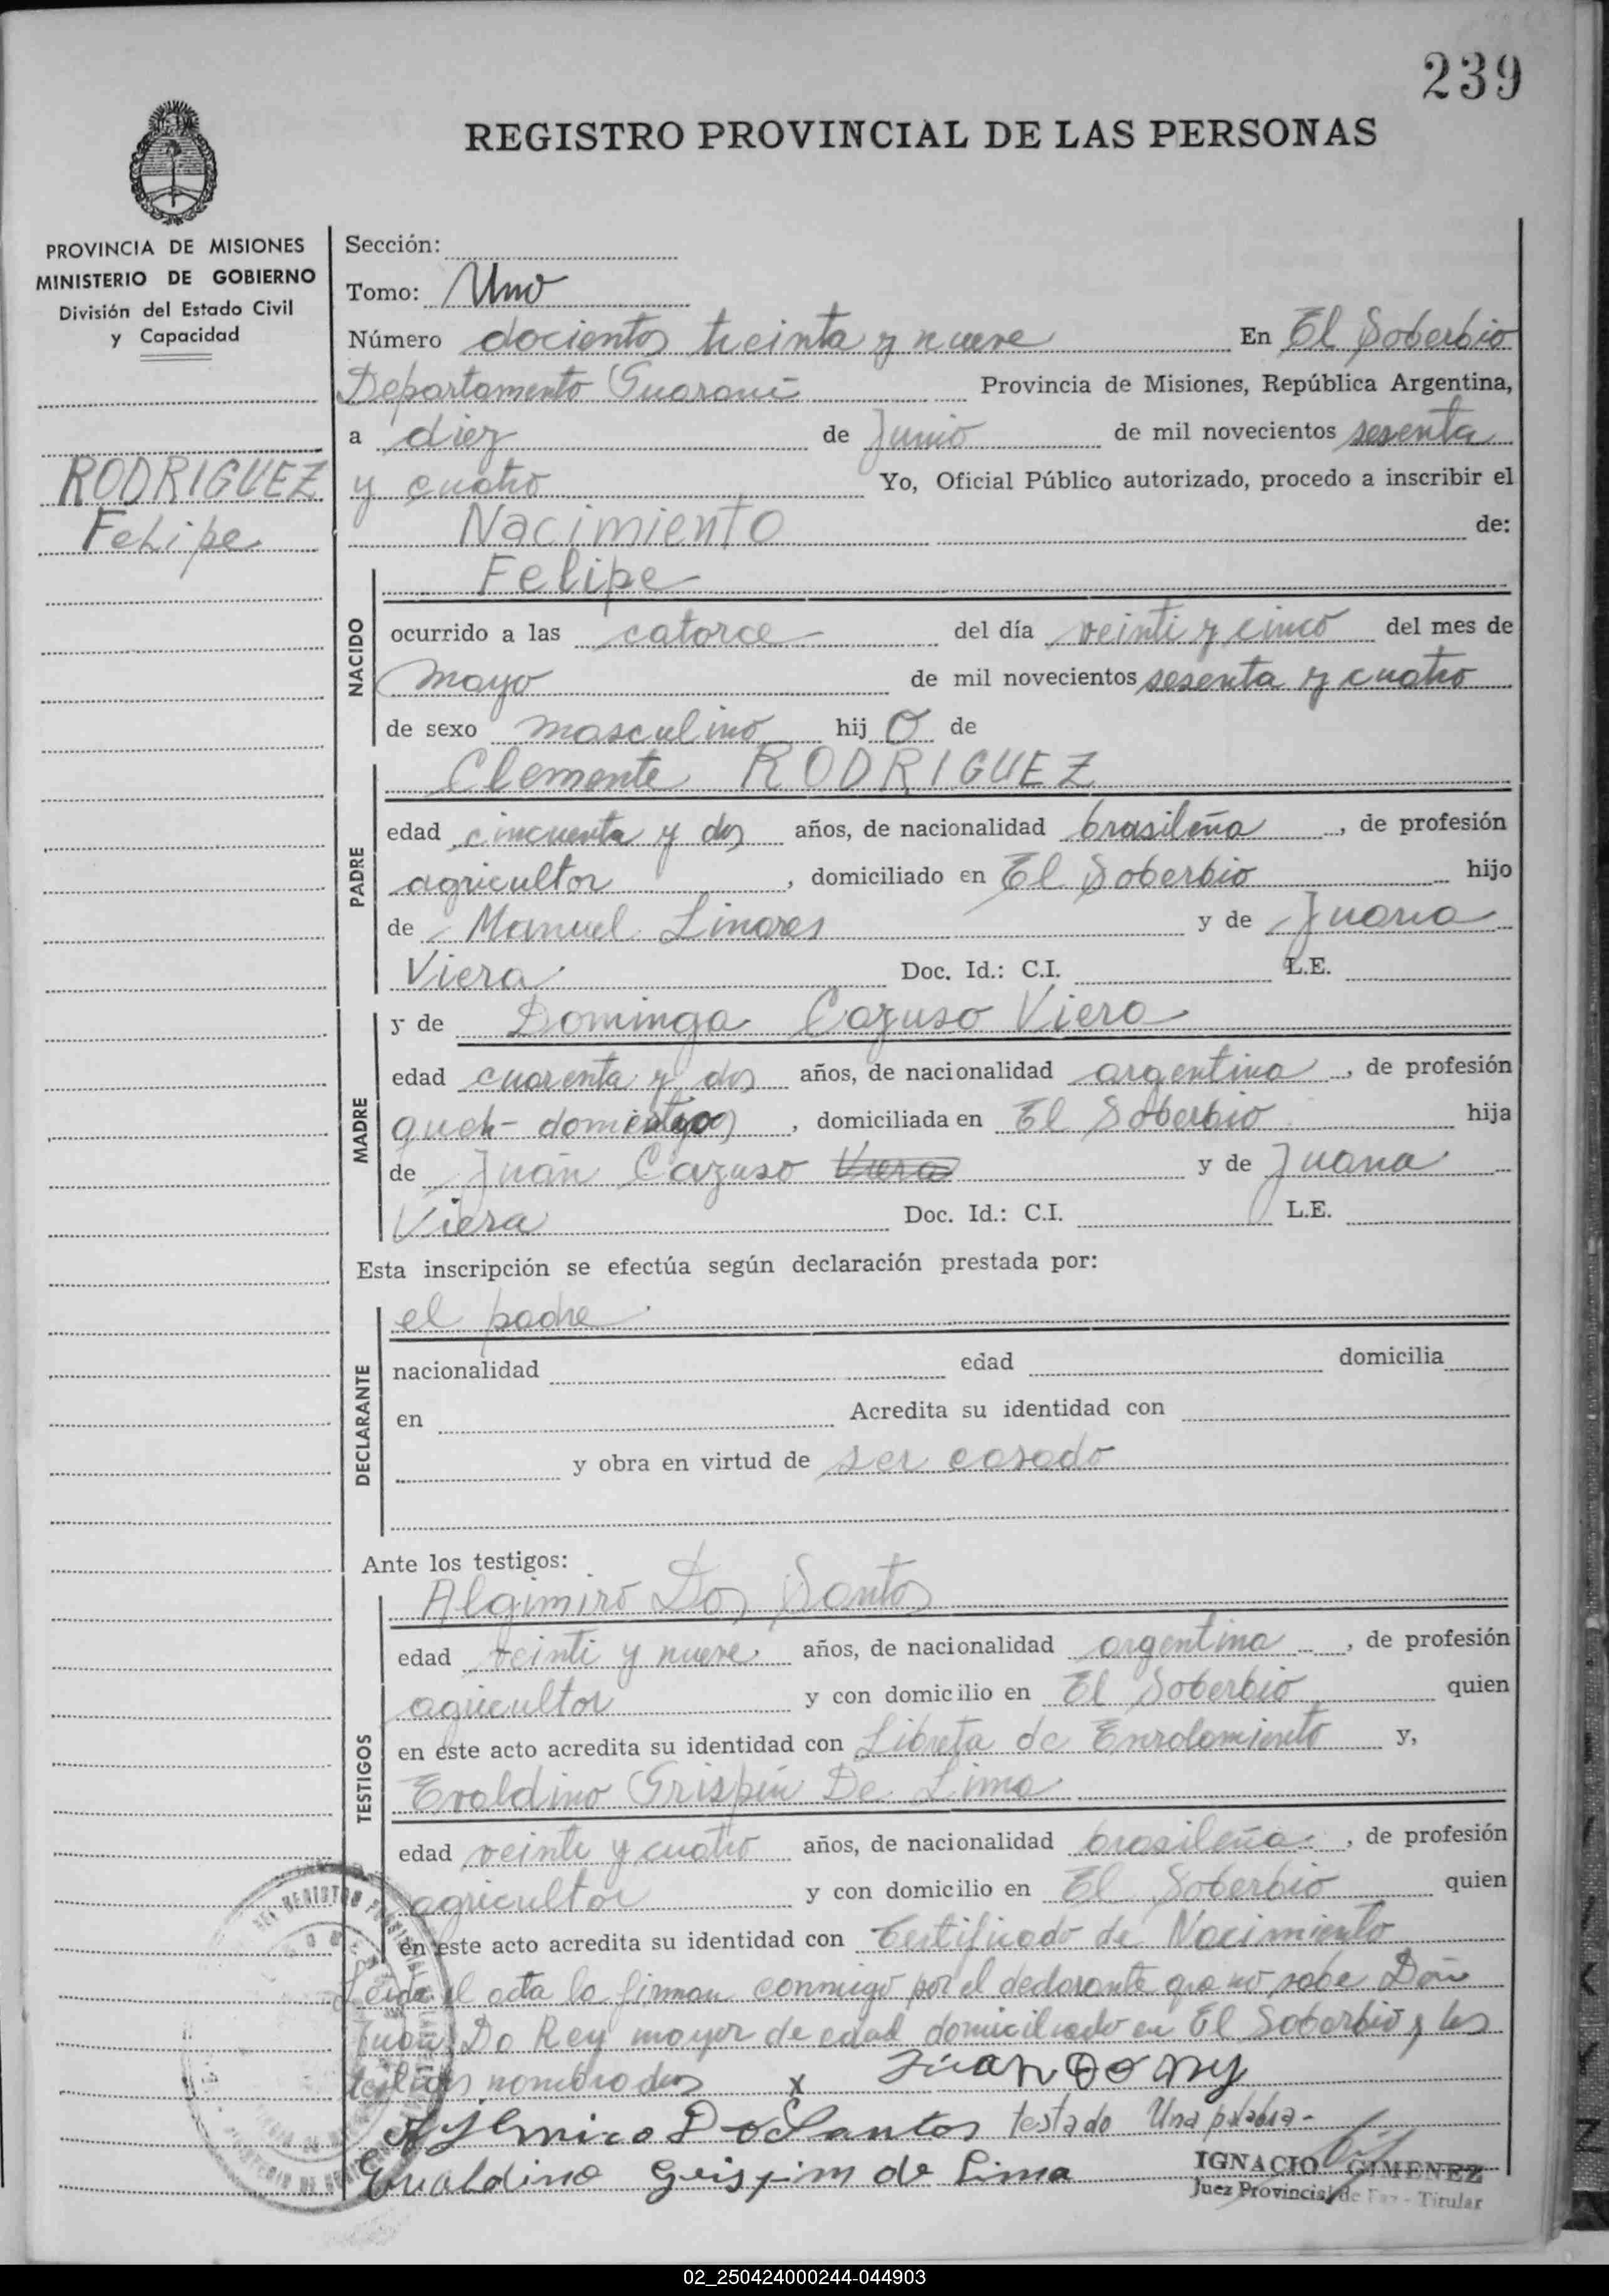 239
REGISTRO PROVINCIAL DE LAS PERSONAS
PROVINCIA DE MISIONES
MINISTERIO DE GOBIERNO
División del Estado Civil
y Capacidad
RODRIGUEZ
Felipe
Sección:
Tomo: Uno
Número docientos treinta y nueve En El Soberbio
Departamento Guaraní Provincia de Misiones, República Argentina,
a diez de Junio de mil novecientos sesenta
y cuatro Yo, Oficial Público autorizado, procedo a inscribir el
Nacimiento de:
NACIDO
Felipe
ocurrido a las catorce del día veinti y cinco del mes de
mayo de mil novecientos sesenta y cuatro
de sexo masculino hij o de
PADRE
Clemente RODRIGUEZ
edad cincuenta y dos años, de nacionalidad brasileña, de profesión
agricultor, domiciliado en El Soberbio hijo
de Manuel Linares y de Juana
Viera Doc. Id.: C.I. L.E.
MADRE
y de Dominga Cazuso Viera
edad cuarenta y dos años, de nacionalidad argentina, de profesión
queh- domesticos, domiciliada en El Soberbio hija
de Juan Cazuso Viera y de Juana
Viera Doc. Id.: C.I. L.E.
Esta inscripción se efectúa según declaración prestada por:
DECLARANTE
el padre
nacionalidad edad domicilia
en Acredita su identidad con
y obra en virtud de ser casado
Ante los testigos:
TESTIGOS
Algimiro Dos Santos
edad veinti y nueve años, de nacionalidad argentina, de profesión
agricultor y con domicilio en El Soberbio quien
en este acto acredita su identidad con Libreta de Enrolamiento y,
Evaldino Grispin De Lima
edad veinti y cuatro años, de nacionalidad brasileña, de profesión
agricultor y con domicilio en El Soberbio quien
en este acto acredita su identidad con Certificado de Nacimiento
Leida el acta la firman conmigo por el declarante que no sabe Don
Juan Do Rey mayor de edad domiciliado en El Soberbio y los
testigos nombrados x Juan Do Rey
Dos Santos testado Una palabra-
Evaldino Grispim de Lima
IGNACIO GIMENEZ
Juez Provincial de Paz - Titular
02_250424000244-044903